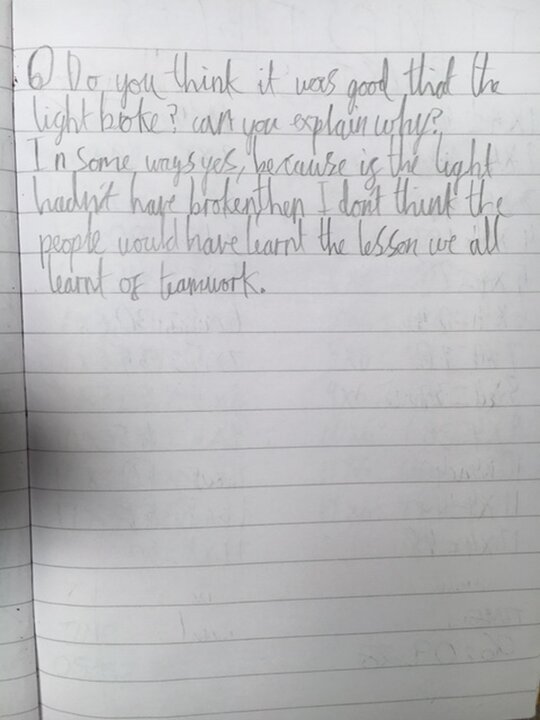 6) Do you think it was good that the
light broke? can you explain why?
In some ways yes, because if the light
hadn't have broken then I dont think the
people would have learnt the lesson we all
learnt of teamwork.